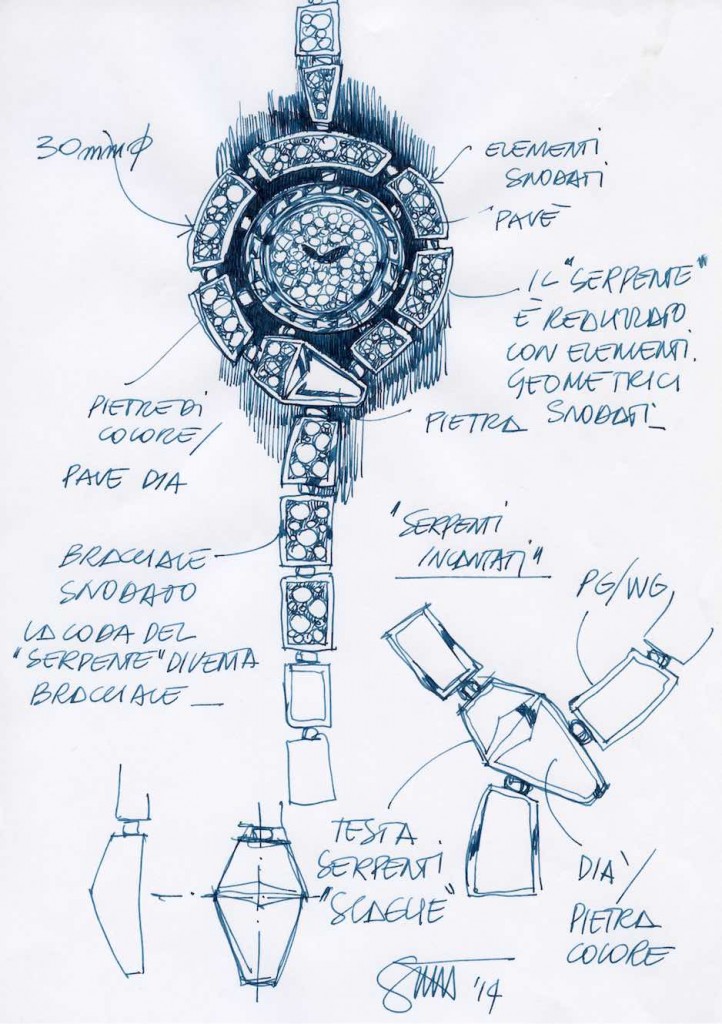 30mmϕ
ELEMENTI
SNODATI
PAVÈ
IL "SERPENTE"
È REALIZZATO
CON ELEMENTI
GEOMETRICI
SNODATI_
PIETRE DI
COLORE/
PAVE DIA
PIETRA
BRACCIALE
SNODATO
LA CODA DEL
"SERPENTE" DIVENTA
BRACCIALE_
"SERPENTI
INCANTATI"
PG/WG
TESTA
SERPENTI
"SCAGLIE"
DIA/
PIETRA
COLORE
'14